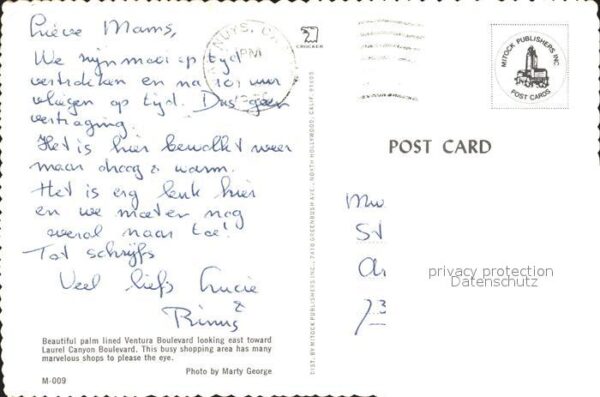 Lieve Mams,
We zijn mooi op tijd
vertrokken en na 10 uur
vliegen op tijd. Dus geen
vertraging.
Het is hier bewolkt weer
maar droog & warm.
Het is erg leuk hier
en we moeten nog
overal naar toe!
Tot schrijfs
Veel liefs Lucie
&
Rinus
Beautiful palm lined Ventura Boulevard looking east toward
Laurel Canyon Boulevard. This busy shopping area has many
marvelous shops to please the eye.
Photo by Marty George
M-009
NUYS, C
PM
CROCKER
DIST. BY MITOCK PUBLISHERS INC. - 7410 GREENBUSH AVE. - NORTH HOLLYWOOD, CALIF. 91605
MITOCK PUBLISHERS INC
POST CARDS
POST CARD
Mw
St
73
privacy protection
Datenschutz